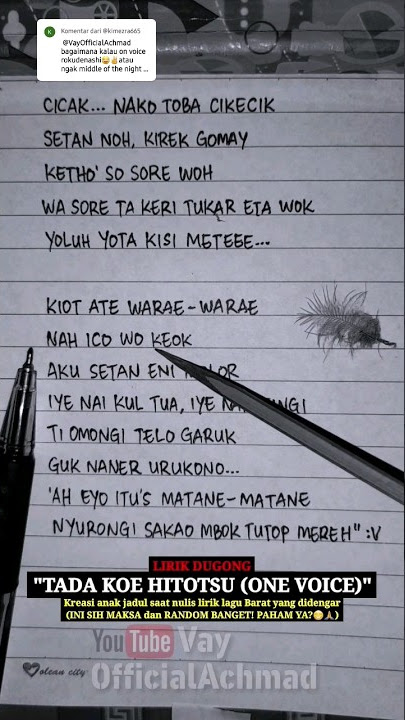 K Komentar dari @kimezra665
@VayOfficialAchmad
bagaimana kalau on voice
rokudenashi😂✌️atau
ngak middle of the night ...
CICAK... NAKO TOBA CIKECIK
SETAN NOH, KIREK GOMAY
KETHO' SO SORE WOH
WA SORE TA KERI TUKAR ETA WOK
YOLUH YOTA KISI METEEE...
KIOT ATE WARAE-WARAE
NAH ICO WO KEOK
AKU SETAN ENI
IYE NAI KUL TUA, IYE
TI OMONGI TELO GARUK
GUK NANER URUKONO...
'AH EYO ITU'S MATANE-MATANE
NYURONGI SAKAO MBOK TUTOP MEREH" :V
LIRIK DUGONG
"TADA KOE HITOTSU (ONE VOICE)"
Kreasi anak jadul saat nulis lirik lagu Barat yang didengar
(INI SIH MAKSA dan RANDOM BANGET! PAHAM YA?😁🙏)
YouTube Vay
OfficialAchmad
olean city